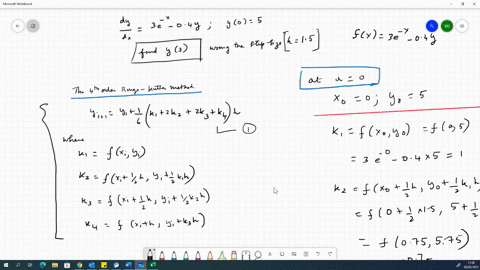 Microsoft Whiteboard
dy/dx = 3e^-x - 0.4y ; y(0) = 5
find y(3) using the step size [h = 1.5]
f(x) = 3e^-x - 0.4y
The 4th order Runge-Kutta method
y_i+1 = y_i + 1/6 (k1 + 2k2 + 2k3 + k4) h
1
where
K1 = f(xi, yi)
K2 = f(xi + 1/2 h, yi + 1/2 k1h)
K3 = f(xi + 1/2 h, yi + 1/2 k2h)
K4 = f(xi+h, yi+k3h)
at x = 0
x0 = 0; y0 = 5
K1 = f(x0, y0) = f(0, 5)
= 3e^-0 - 0.4×5 = 1
K2 = f(x0 + 1/2 h, y0 + 1/2 k1h
= f(0 + 1/2 ×1.5, 5 + 1/2
= f(0.75, 5.75)